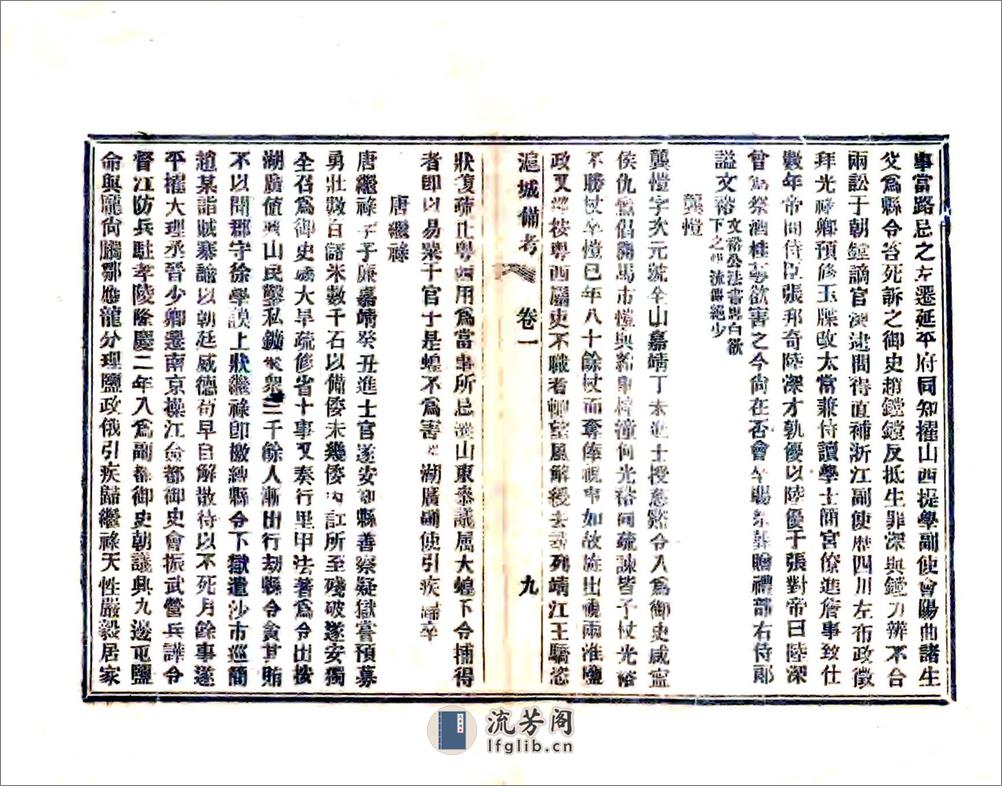 事當路忌之左遷延平府同知擢山西提學副使會陽曲諸生
父爲縣令笞死訴之御史趙鏜鏜反抵生罪深與鏜力辨不合
兩訟于朝鏜謫官深逮問得直補浙江副使歴四川左布政徵
拜光祿卿預修玉牒改太常兼侍讀學士簡宮僚進詹事致仕
數年帝問侍臣張邦奇陸深才孰優以陸優于張對帝曰陸深
曾爲祭酒桂萼欲害之今尙在否會卒賜祭葬贈禮部右侍郞
謚文裕
文裕公法書
下之 流傳絕少
龔愷
龔愷字次元號全山嘉靖丁未進士授慈谿令入爲御史咸寧
侯仇鸞倡開馬市愷與 何光裕同疏諫皆予杖光裕
不勝杖卒愷已年八十餘杖而奪俸視事如故旋出視兩淮鹽
政又巡按粤西屬吏不職者 望風解綬去 列靖江王驕恣
滬城備考
卷一
九
狀復疏止粤西用爲當事所忌 山東叅議属大蝗下令捕得
者卽以易粟千官于是蝗不爲害 湖廣副使引疾歸卒
唐繼祿
唐繼祿字子廉嘉靖癸丑進士官遂安知縣善察疑獄嘗預募
勇壯數百諸米數千石以備倭未幾倭內訌所至殘破遂安獨
全召爲御史 大旱疏修省十事又奏行里甲法著爲令出按
湖廣値興山民鑿私鑛 衆三千餘人漸出行劫縣令貪其賄
不以聞郡守徐學謨上狀繼祿卽檄縛縣令下獄遣沙市巡簡
趙某詣賊寨諭以朝廷威德苟早自解散待以不死月餘事遂
平擢大理丞晉少卿遷南京操江僉都御史會振武營兵譁令
督江防兵駐孝陵隆慶二年入爲副都御史朝議興九邊屯鹽
命與龐尙鵬鄒應龍分理鹽政俄引疾歸繼祿天性嚴毅居家
流芳阁
lfglib.cn